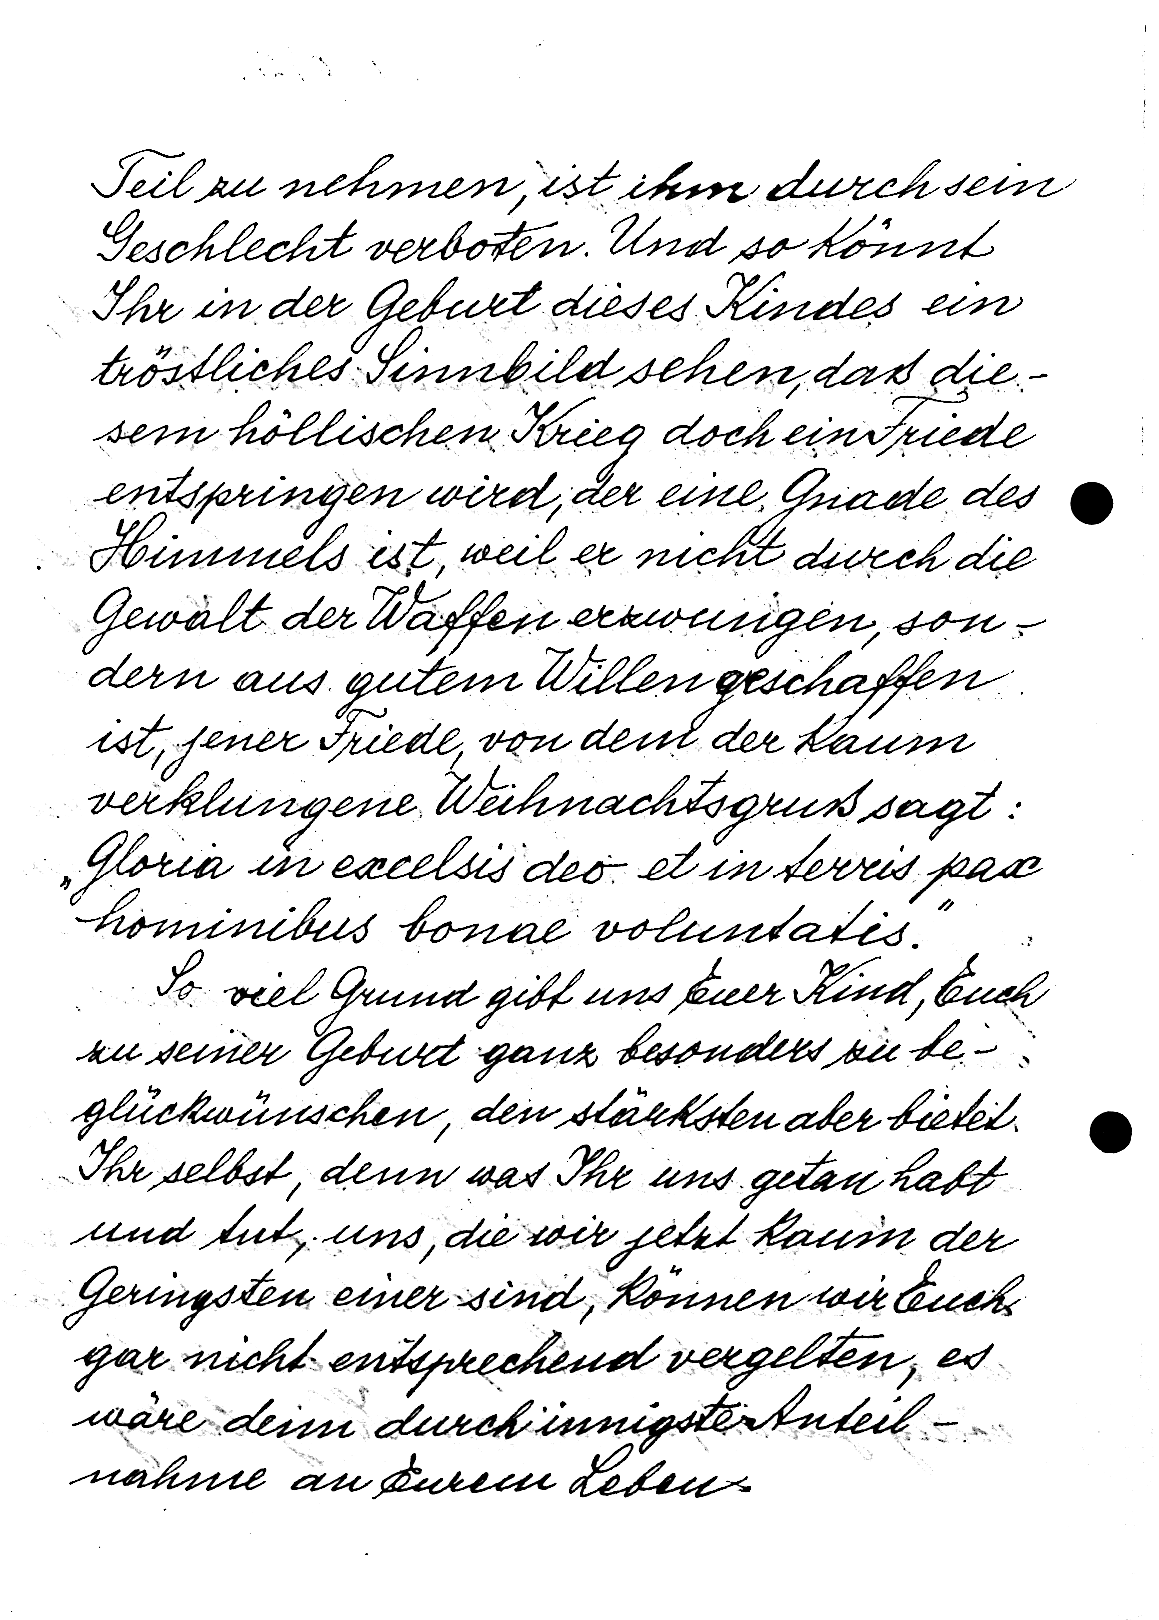 Teil zu nehmen, ist ihm durch sein
Geschlecht verboten. Und so könnt
Ihr in der Geburt dieses Kindes ein
tröstliches Sinnbild sehen, daß die-
sem höllischen Krieg doch ein Friede
entspringen wird, der eine Gnade des
Himmels ist, weil er nicht durch die
Gewalt der Waffen erzwungen, son-
dern aus gutem Willen geschaffen
ist, jener Friede, von dem der kaum
verklungene Weihnachtsgruß sagt:
„Gloria in excelsis deo et in terris pax
hominibus bonae voluntatis."
So viel Grund gibt uns Euer Kind, Euch
zu seiner Geburt ganz besonders zu be-
glückwünschen, den stärksten aber bietet
Ihr selbst, denn was Ihr uns getan habt
und tut, uns, die wir jetzt kaum der
Geringsten einer sind, können wir Euch
gar nicht entsprechend vergelten, es
wäre denn durch innigste Anteil-
nahme an Eurem Leben.